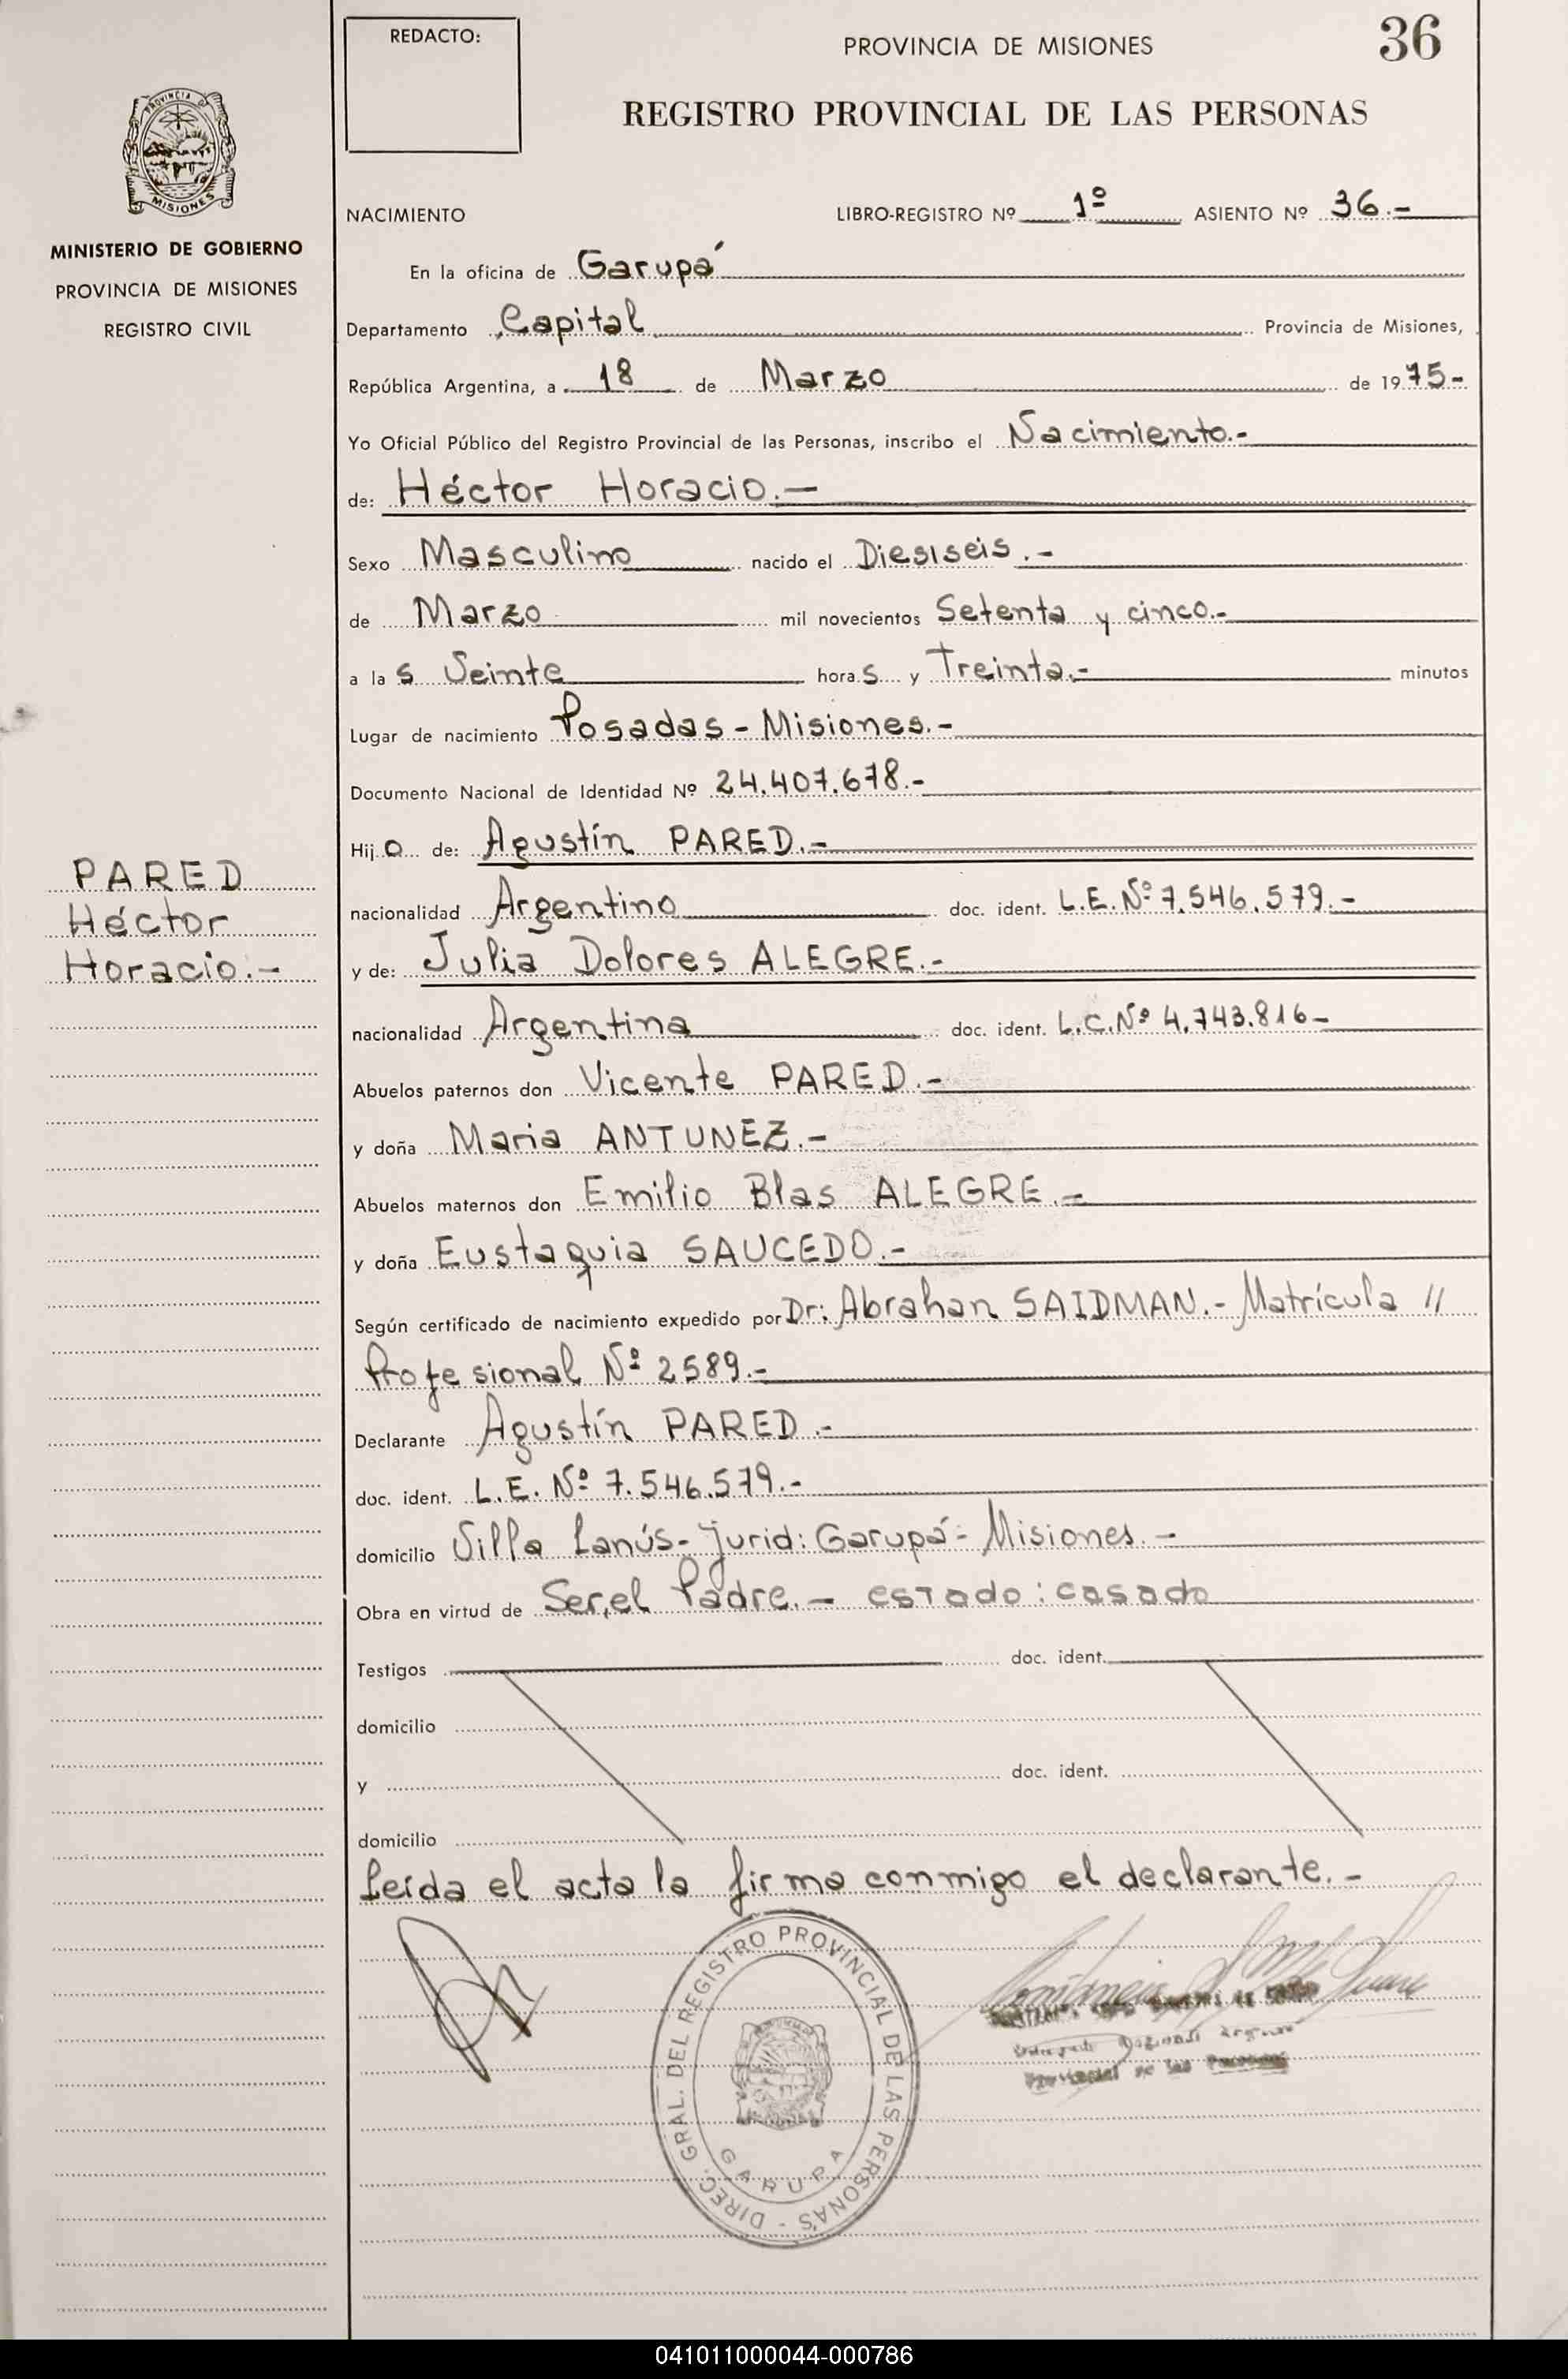 REDACTO:
PROVINCIA DE MISIONES
36
REGISTRO PROVINCIAL DE LAS PERSONAS
PROVINCIA DE
MISIONES
MINISTERIO DE GOBIERNO
PROVINCIA DE MISIONES
REGISTRO CIVIL
NACIMIENTO LIBRO-REGISTRO Nº 1º ASIENTO Nº 36.-
En la oficina de Garupá
Departamento Capital Provincia de Misiones,
República Argentina, a 18 de Marzo de 1975-
Yo Oficial Público del Registro Provincial de las Personas, inscribo el Nacimiento.-
de: Héctor Horacio.-
Sexo Masculino nacido el Diesiseis.-
de Marzo mil novecientos Setenta y cinco.-
a las Veinte horas y Treinta.- minutos
Lugar de nacimiento Posadas - Misiones.-
Documento Nacional de Identidad Nº 24.407.678.-
Hijo de: Agustín PARED.-
PARED
Héctor
Horacio.-
nacionalidad Argentino doc. ident. L.E. Nº 7.546.579.-
y de: Julia Dolores ALEGRE.-
nacionalidad Argentina doc. ident. L.C. Nº 4.743.816-
Abuelos paternos don Vicente PARED.-
y doña Maria ANTUNEZ.-
Abuelos maternos don Emilio Blas ALEGRE.-
y doña Eustaquia SAUCEDO.-
Según certificado de nacimiento expedido por Dr: Abrahan SAIDMAN.- Matrícula //
Profesional Nº 2589.-
Declarante Agustín PARED.-
doc. ident. L.E. Nº 7.546.579.-
domicilio Villa Lanús- Jurid: Garupá- Misiones.-
Obra en virtud de Ser, el Padre.- estado: casado
Testigos doc. ident.
domicilio
y doc. ident.
domicilio
Leída el acta la firma conmigo el declarante.-
DIREC. GRAL. DEL REGISTRO PROVINCIAL DE LAS PERSONAS -
GARUPA
Provincial de las Personas
041011000044-000786